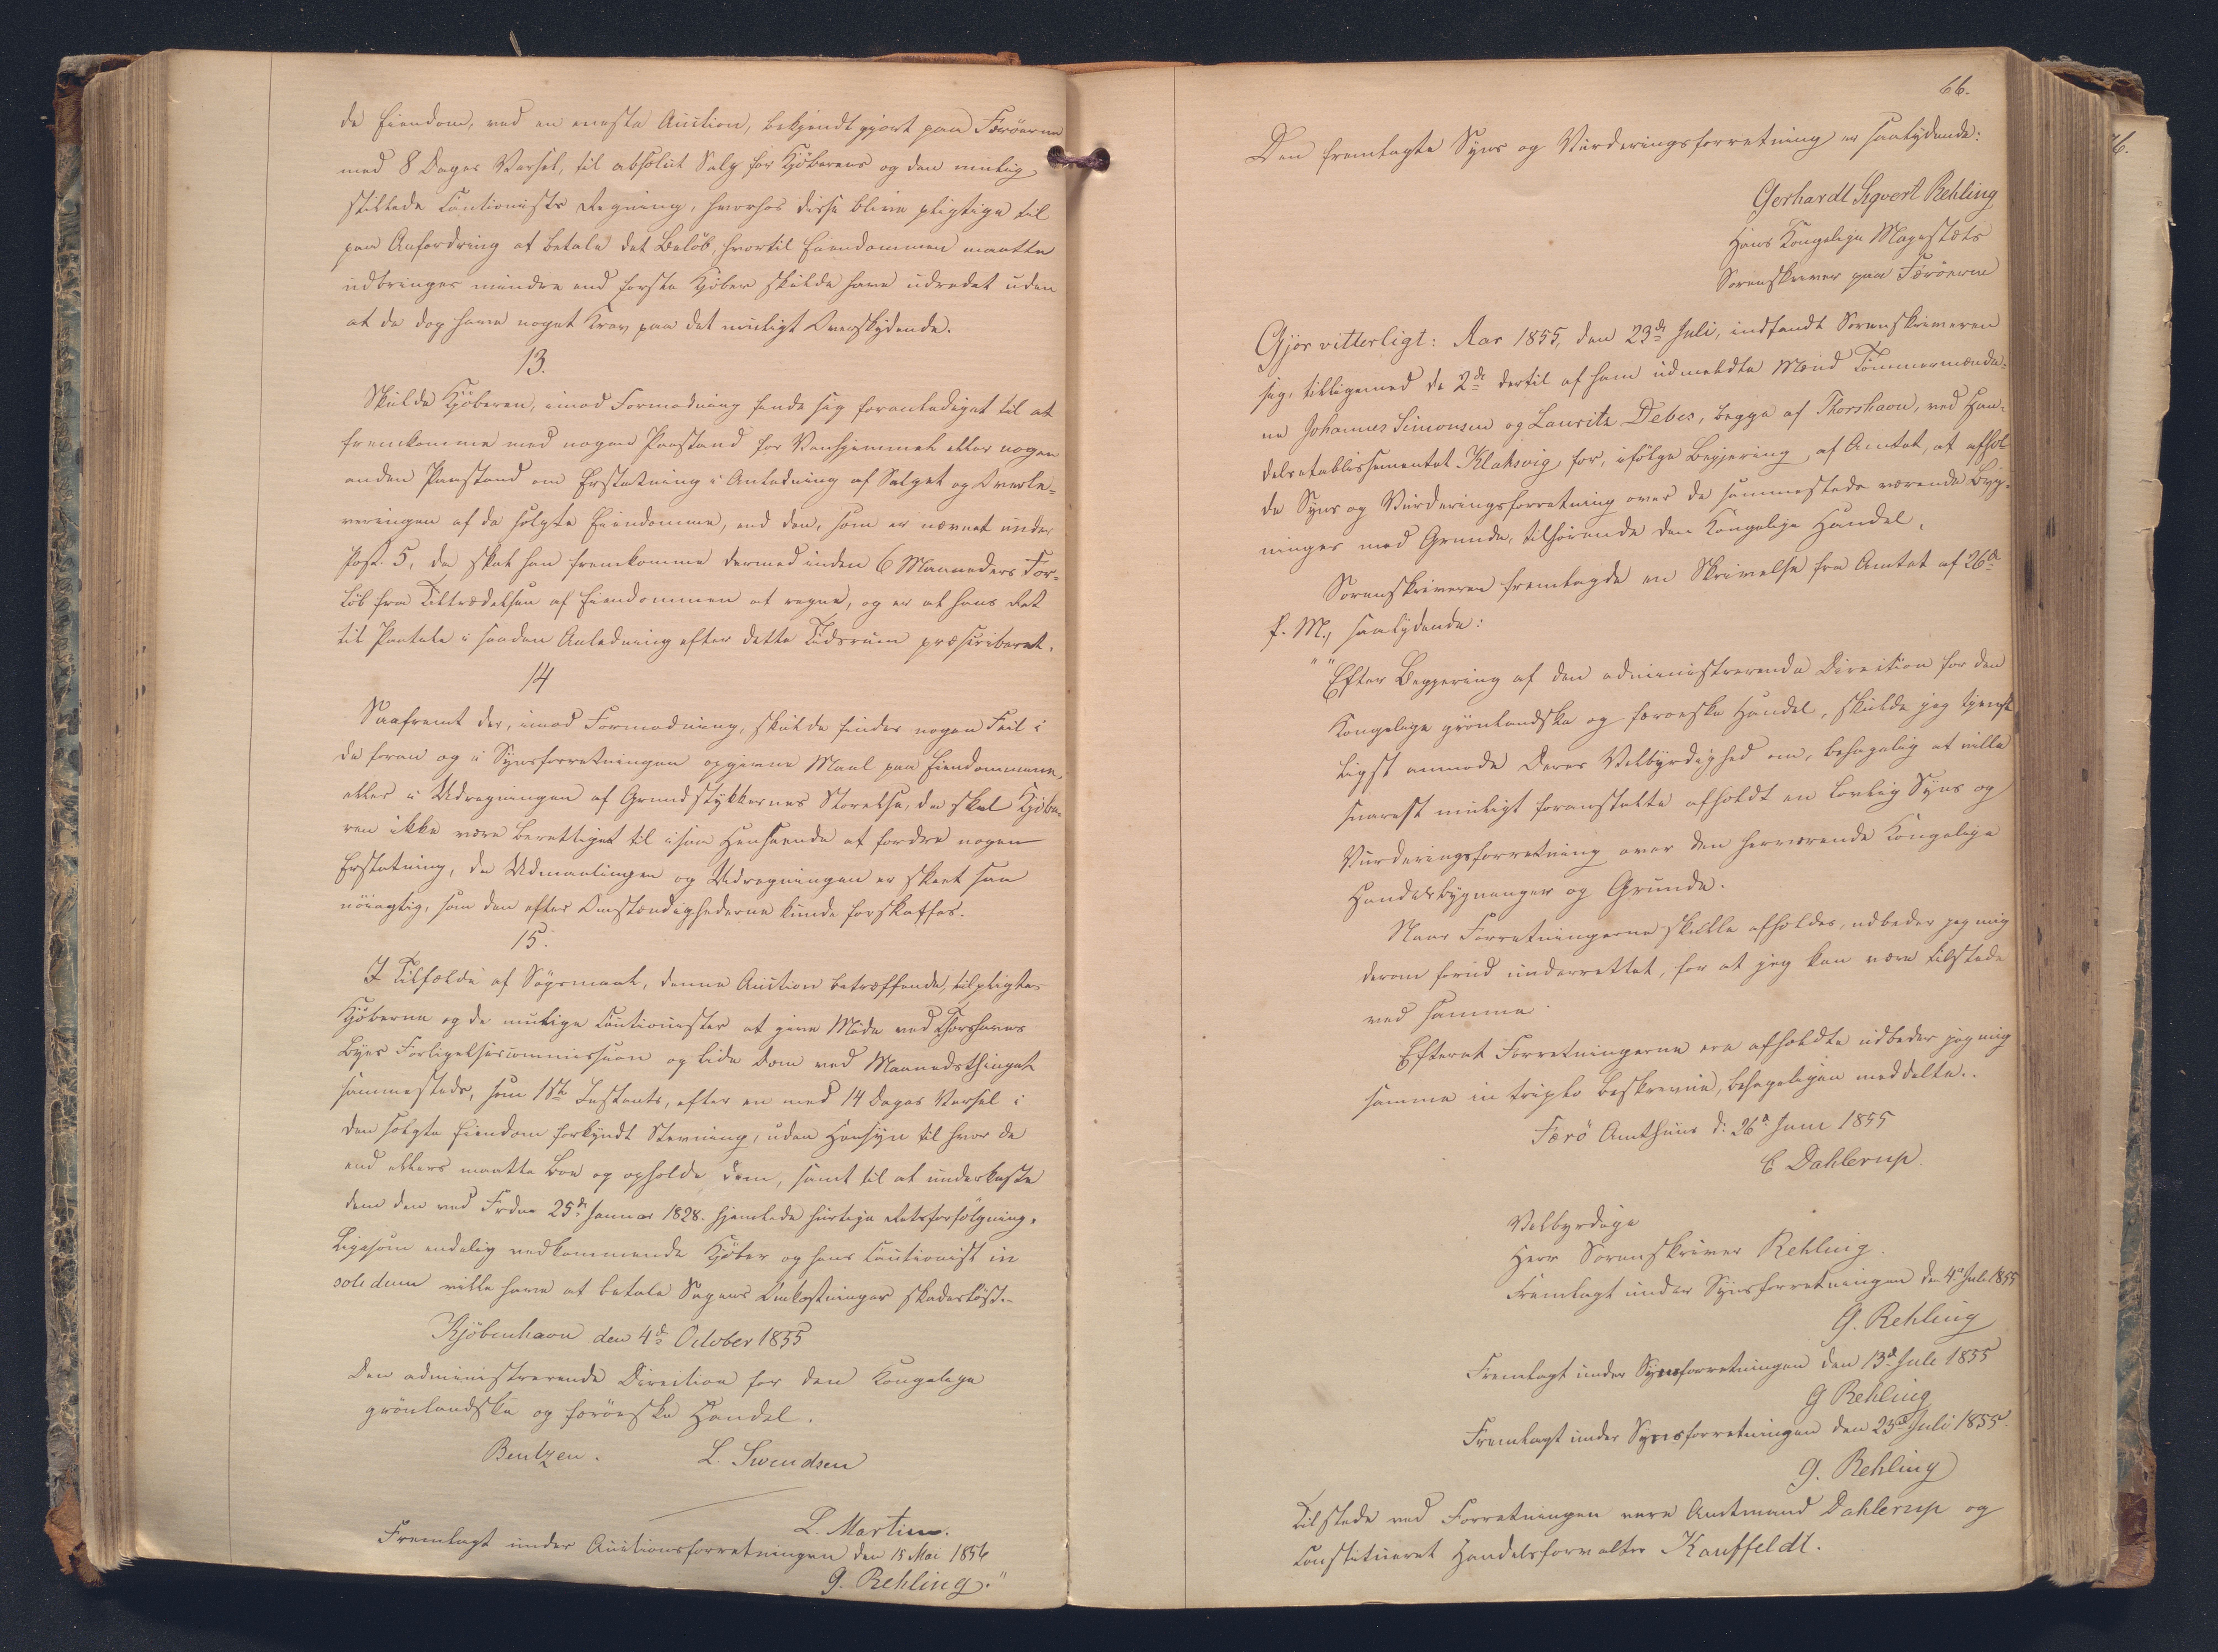 de Eiendom, ved en eneste Auction, bekjendtgjort paa Færöerne
med 8 Dages Varsel, til absolut Salg for Kjöberens og den mulig
stillede Cautionists Regning, hvorhos disse blive pligtige til
paa Anfordring at betale det Beløb, hvortil Eiendommen maatte
udbringes mindre end første Kjöber skulde have udredet uden
at de dog have noget Krav paa det muligt Overskydende.
13.
Skulde Kjöberen, imod Formodning finde sig foranlediget til at
fremkomme med nogen Paastand for Vanhjemmel eller nogen
anden Paastand om Erstatning i Anledning af Salget og Overle-
veringen af de solgte Eiendomme, end den, som er nævnet under
Post. 5, da skal han fremkomme dermed inden 6 Maaneders For-
løb fra Tiltrædelsen af Eiendommen at regne, og er al hans Ret
til Paatale i saadan Anledning efter dette Tidsrum præscriberet.
14
Saafremt der, imod Formodning, skulde findes nogen Feil i
de foran og i Synsforretningen opgivne Maal paa Eiendommene,
eller i Udregningen af Grundstykkernes Størrelse, da skal Kjöbe-
ren ikke være berettiget til i saa Henseende at fordre nogen
Erstatning, da Udmaalingen og Udregningen er skeet saa
nöiagtig, som den efter Omstændighederne kunde forskaffes.
15.
I Tilfælde af Søgsmaal, denne Auction betræffende, tilpligtes
Kjöberne og de mulige Cautionister at give Møde ved Thorshavns
Byes Forligelsescommission og lide Dom ved Maanedsthinget
sammesteds, som 1ste Instants, efter en med 14 Dages Varsel i
den solgte Eiendom forkyndt Stevning, uden Hensyn til hvor de
end ellers maatte boe og opholde dem, samt til at underkaste
dem den ved Frdn. 25de Januar 1828. hjemlede hurtige Retsforfölgning,
Ligesom endelig vedkommende Kjöber og hans Cautionist in
solidum ville have at betale Sagens Omkostninger skadeslöst.-
Kjöbenhavn den 4de October 1855
Den administrerende Direction for den Kongelige
grönlandske og færöeske Handel.
Bentzen. L. Svendsen
L. Martin.
Fremlagt under Auctionsforretningen den 15 Mai 1856
G. Rehling."
66.
Den fremlagte Syns og Vurderingsforretning er saalydende:
Gerhardt Sigvert Rehling
Hans Kongelige Majestæts
Sorenskriver paa Færöerne
Gjør vitterligt: Aar 1855, den 23de Juli, indfandt Sorenskriveren
sig, tilligemed de 2de dertil af ham udmeldte Mænd Tömmermænde-
ne Johannes Simonsen og Lauritz Debes, begge af Thorshavn, ved Han-
delsetablissementet Klaksvig, for, ifölge Begjering af Amtet, at afhol-
de Syns og Vurderingsforretning over de sammesteds værende Byg-
ninger med Grunde, tilhörende den Kongelige Handel.
Sorenskriveren fremlagde en Skrivelse fra Amtet af 26de
f. M., saalydende:
"Efter Begjering af den administrerende Direction for den
Kongelige grönlandske og færøeske Handel, skulde jeg tjenst-
ligst anmode Deres Velbyrdighed om, behagelig at ville
snarest muligt foranstalte afholdt en lovlig Syns og
Vurderingsforretning over den herværende Kongelige
Handels bygninger og Grunde.
Naar Forretningerne skulle afholdes, udbeder jeg mig
derom forud underrettet, for at jeg kan være tilstede
ved samme
Efterat Forretningerne ere afholdte udbeder jeg mig
samme in triplo beskrevne, behageligen meddelte..
Færö Amthuus d: 26de Juni 1855
C Dahlerup.
Velbyrdige
Herr Sorenskriver Rehling.
Fremlagt under Synsforretningen den 4de Juli 1855
G. Rehling
Fremlagt under Synsforretningen den 13de Juli 1855
G Rehling
Fremlagt under Synsforretningen den 23de Juli 1855.
G. Rehling
Tilstede ved Forretningen vare Amtmand Dahlerup og
Constitueret Handelsforvalter Kauffeldt.